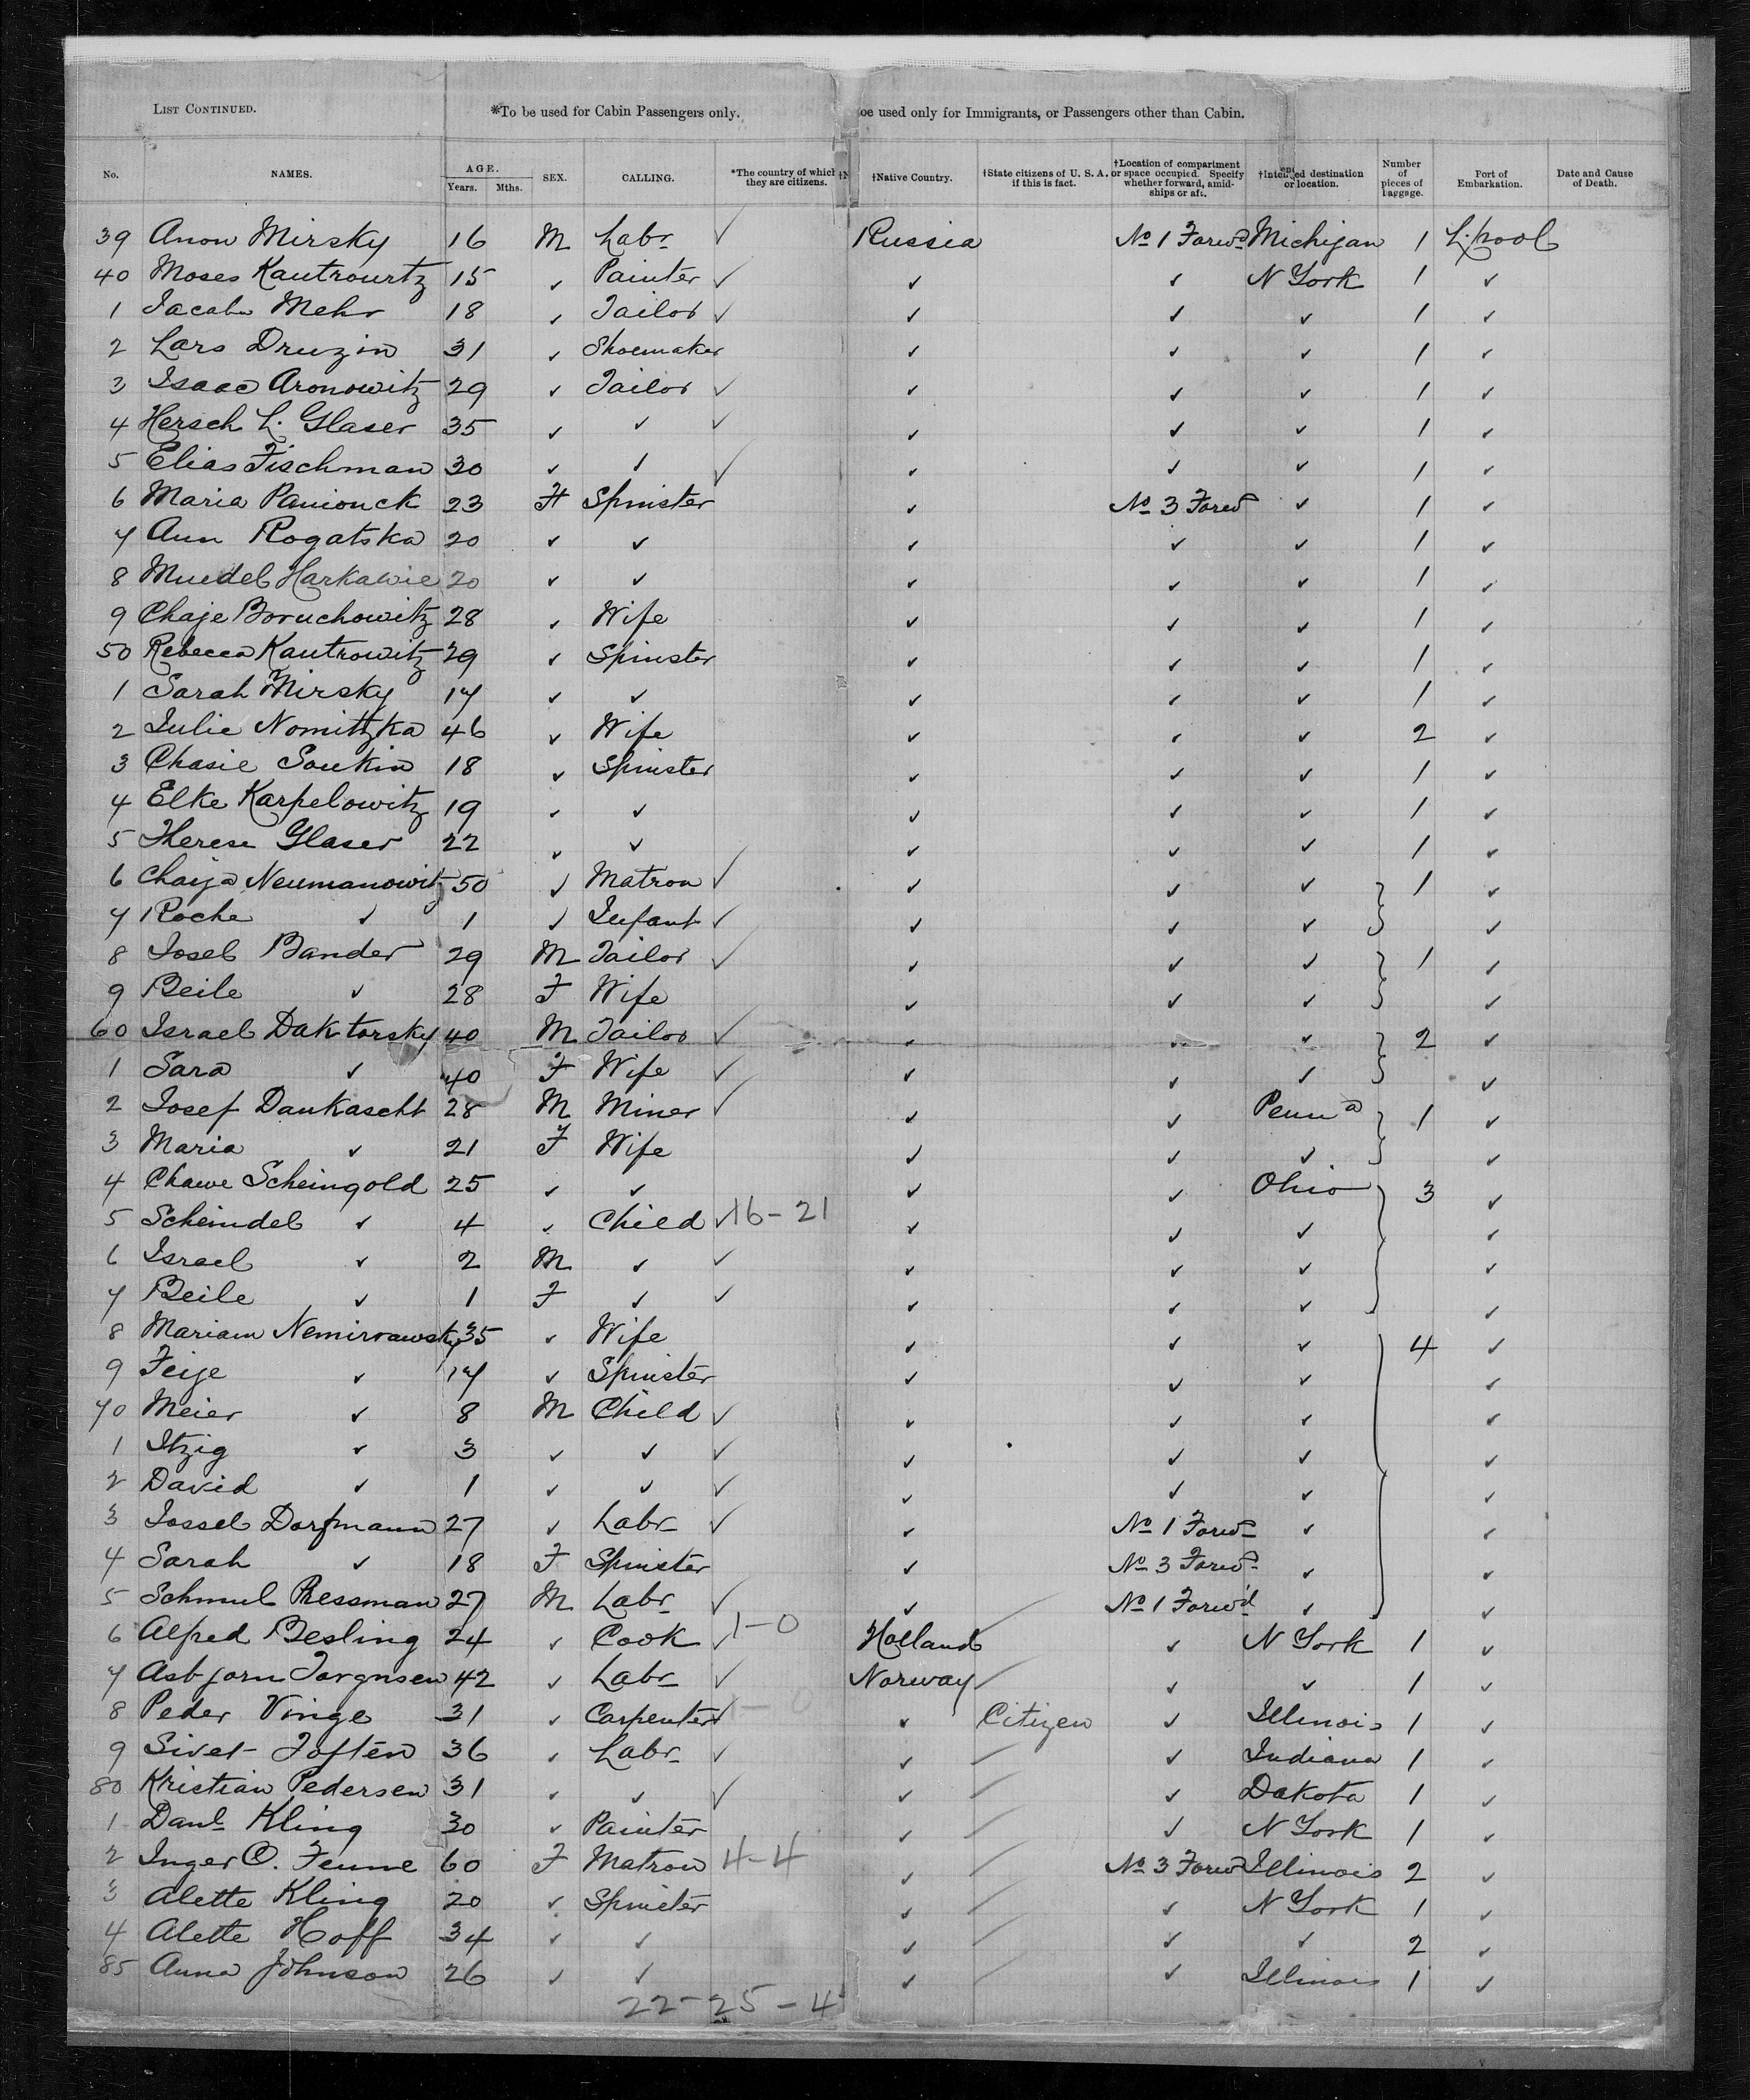 LIST CONTINUED. *To be used for Cabin Passengers only. be used only for Immigrants, or Passengers other than Cabin.
No. NAMES. AGE. Years. Mths. SEX. CALLING. *The country of which they are citizens. †Native Country. †State citizens of U. S. A. if this is fact. †Location of compartment or space occupied. Specify whether forward, amid-ships or aft. †Intended destination or location. Number of pieces of baggage. Port of Embarkation. Date and Cause of Death.
39 Anon Mirsky 16 M Labr ✓ Russia No 1 Forwd Michigan 1 L.pool
40 Moses Kautrowitz 15 ✓ Painter ✓ ✓ ✓ N York 1 ✓
1 Jacob Mehr 18 ✓ Tailor ✓ ✓ ✓ ✓ 1 ✓
2 Lars Druzin 31 ✓ Shoemaker ✓ ✓ ✓ 1 ✓
3 Isaac Aronowitz 29 ✓ Tailor ✓ ✓ ✓ ✓ 1 ✓
4 Hersch L. Glaser 35 ✓ ✓ ✓ ✓ ✓ ✓ 1 ✓
5 Elias Fischman 30 ✓ ✓ ✓ ✓ ✓ ✓ 1 ✓
6 Maria Panionck 23 F Spinster ✓ No 3 Forwd ✓ 1 ✓
7 Ann Rogatska 20 ✓ ✓ ✓ ✓ ✓ 1 ✓
8 Muedel Harkawie 20 ✓ ✓ ✓ ✓ ✓ 1 ✓
9 Chaje Boruchowitz 28 ✓ Wife ✓ ✓ ✓ 1 ✓
50 Rebecca Kautrowitz 29 ✓ Spinster ✓ ✓ ✓ 1 ✓
1 Sarah Mirsky 17 ✓ ✓ ✓ ✓ ✓ 1 ✓
2 Julie Nomittzka 46 ✓ Wife ✓ ✓ ✓ 2 ✓
3 Chasie Soukin 18 ✓ Spinster ✓ ✓ ✓ 1 ✓
4 Elke Karpelowitz 19 ✓ ✓ ✓ ✓ ✓ 1 ✓
5 Therese Glaser 22 ✓ ✓ ✓ ✓ ✓ 1 ✓
6 Chaija Neumanowitz 50 ✓ Matron ✓ ✓ ✓ ✓ 1 ✓
7 Roche ✓ 1 ✓ Infant ✓ ✓ ✓ ✓ ✓
8 Josel Bander 29 M Tailor ✓ ✓ ✓ ✓ 1 ✓
9 Beile ✓ 28 F Wife ✓ ✓ ✓ ✓
60 Israel Daktorsky 40 M Tailor ✓ ✓ ✓ ✓ 2 ✓
1 Sara ✓ 40 F Wife ✓ ✓ ✓ ✓ ✓
2 Josef Daukascht 28 M Miner ✓ ✓ ✓ Penna 1 ✓
3 Maria ✓ 21 F Wife ✓ ✓ ✓ ✓
4 Chawe Scheingold 25 ✓ ✓ ✓ ✓ Ohio 3 ✓
5 Scheindel ✓ 4 ✓ Child ✓ 16-21 ✓ ✓ ✓ ✓
6 Israel ✓ 2 M ✓ ✓ ✓ ✓ ✓ ✓
7 Beile ✓ 1 F ✓ ✓ ✓ ✓ ✓ ✓
8 Mariam Nemirrawsky 35 ✓ Wife ✓ ✓ ✓ 4 ✓
9 Feije ✓ 17 ✓ Spinster ✓ ✓ ✓ ✓
70 Meier ✓ 8 M Child ✓ ✓ ✓ ✓ ✓
1 Itzig ✓ 3 ✓ ✓ ✓ ✓ ✓ ✓ ✓
2 David ✓ 1 ✓ ✓ ✓ ✓ ✓ ✓ ✓
3 Jossel Dorfmann 27 ✓ Labr ✓ ✓ No 1 Forwd ✓ ✓
4 Sarah ✓ 18 F Spinster ✓ No 3 Forwd ✓ ✓
5 Schmul Pressman 27 M Labr ✓ ✓ No 1 Forwd ✓ ✓
6 Alfred Besling 24 ✓ Cook ✓ 1-0 Holland ✓ N York 1 ✓
7 Asbjorn Torgnsen 42 ✓ Labr ✓ Norway ✓ ✓ 1 ✓
8 Peder Vinge 31 ✓ Carpenter ✓ 1-0 ✓ Citizen ✓ Illinois 1 ✓
9 Sivet Toften 36 ✓ Labr ✓ ✓ ✓ Indiana 1 ✓
80 Kristian Pedersen 31 ✓ ✓ ✓ ✓ ✓ Dakota 1 ✓
1 Danl Kling 30 ✓ Painter ✓ ✓ N York 1 ✓
2 Inger O. Fenne 60 F Matron 4-4 ✓ No 3 Forwd Illinois 2 ✓
3 Alette Kling 20 ✓ Spinster ✓ ✓ N York 1 ✓
4 Alette Hoff 34 ✓ ✓ ✓ ✓ ✓ 2 ✓
85 Anna Johnson 26 ✓ ✓ ✓ ✓ Illinois 1 ✓
22-25-4